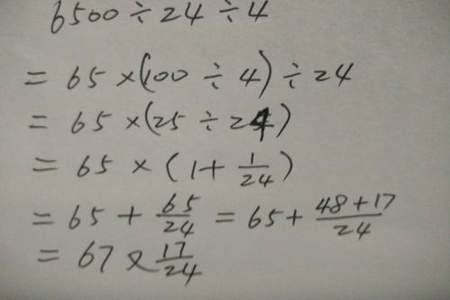 6500÷24÷4
= 65×(100÷4)÷24
= 65×(25÷24)
= 65×(1+1/24)
= 65+65/24=65+48+17/24
= 67 17/24